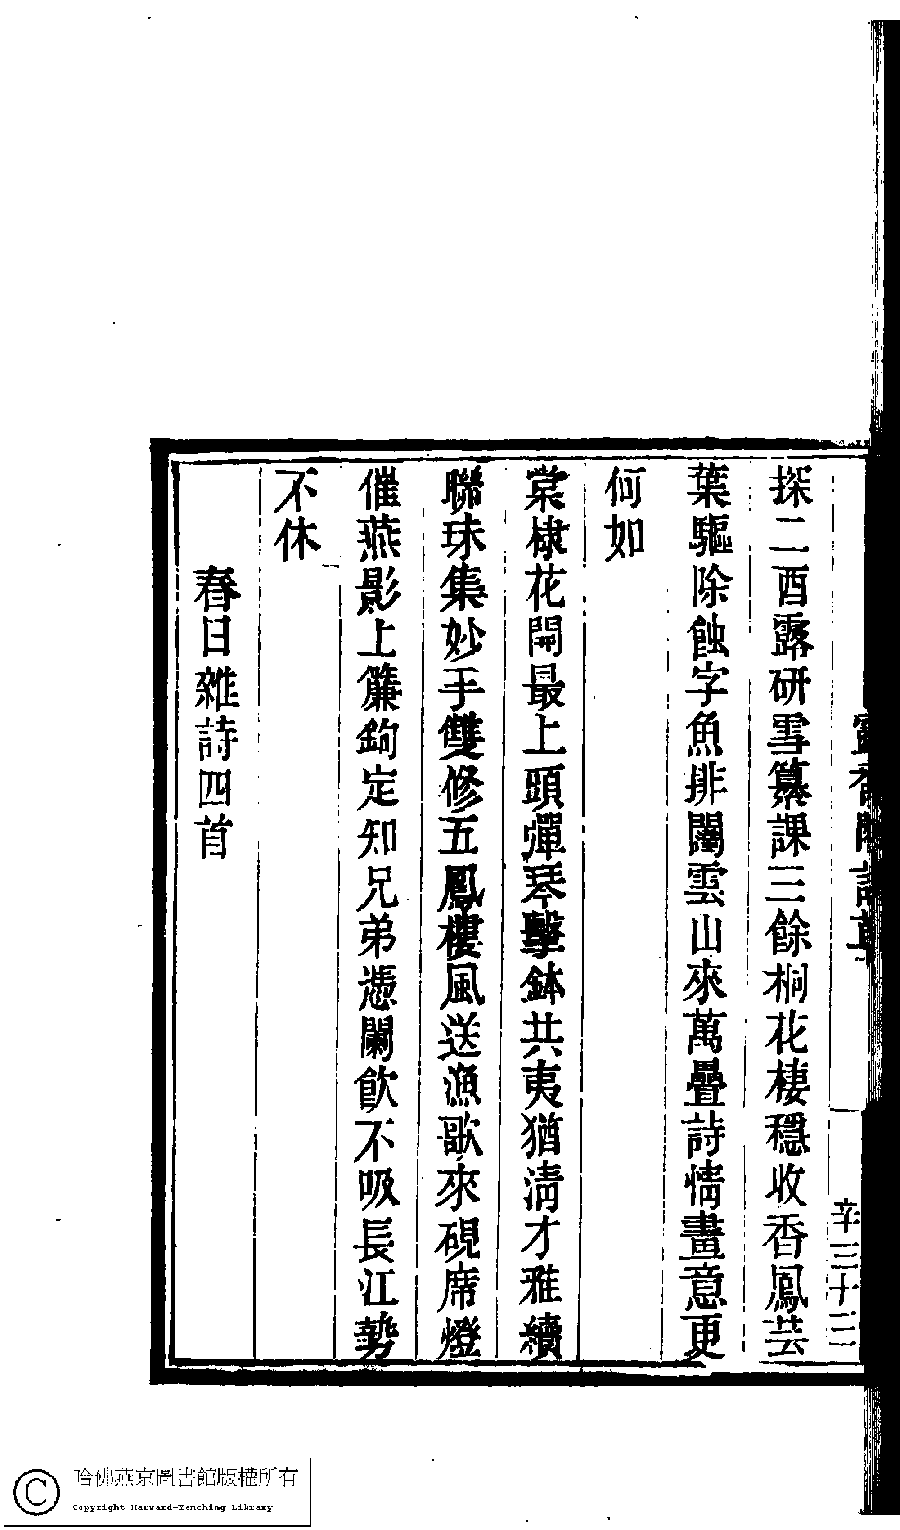 辛三十三
探二酉露研雪纂課三餘桐花棲穩收香鳳芸
葉驅除蝕字魚排闥雲山來萬疊詩情畫意更
何如
棠棣花開最上頭彈琴擊鉢共夷猶清才雅續
聯珠集妙手雙修五鳳樓風送漁歌來硯席燈
催燕影上簾鉤定知兄弟憑闌飲不吸長江勢
不休
春日雜詩四首
哈佛燕京圖書館版權所有
Copyright Harvard-Yenching Library